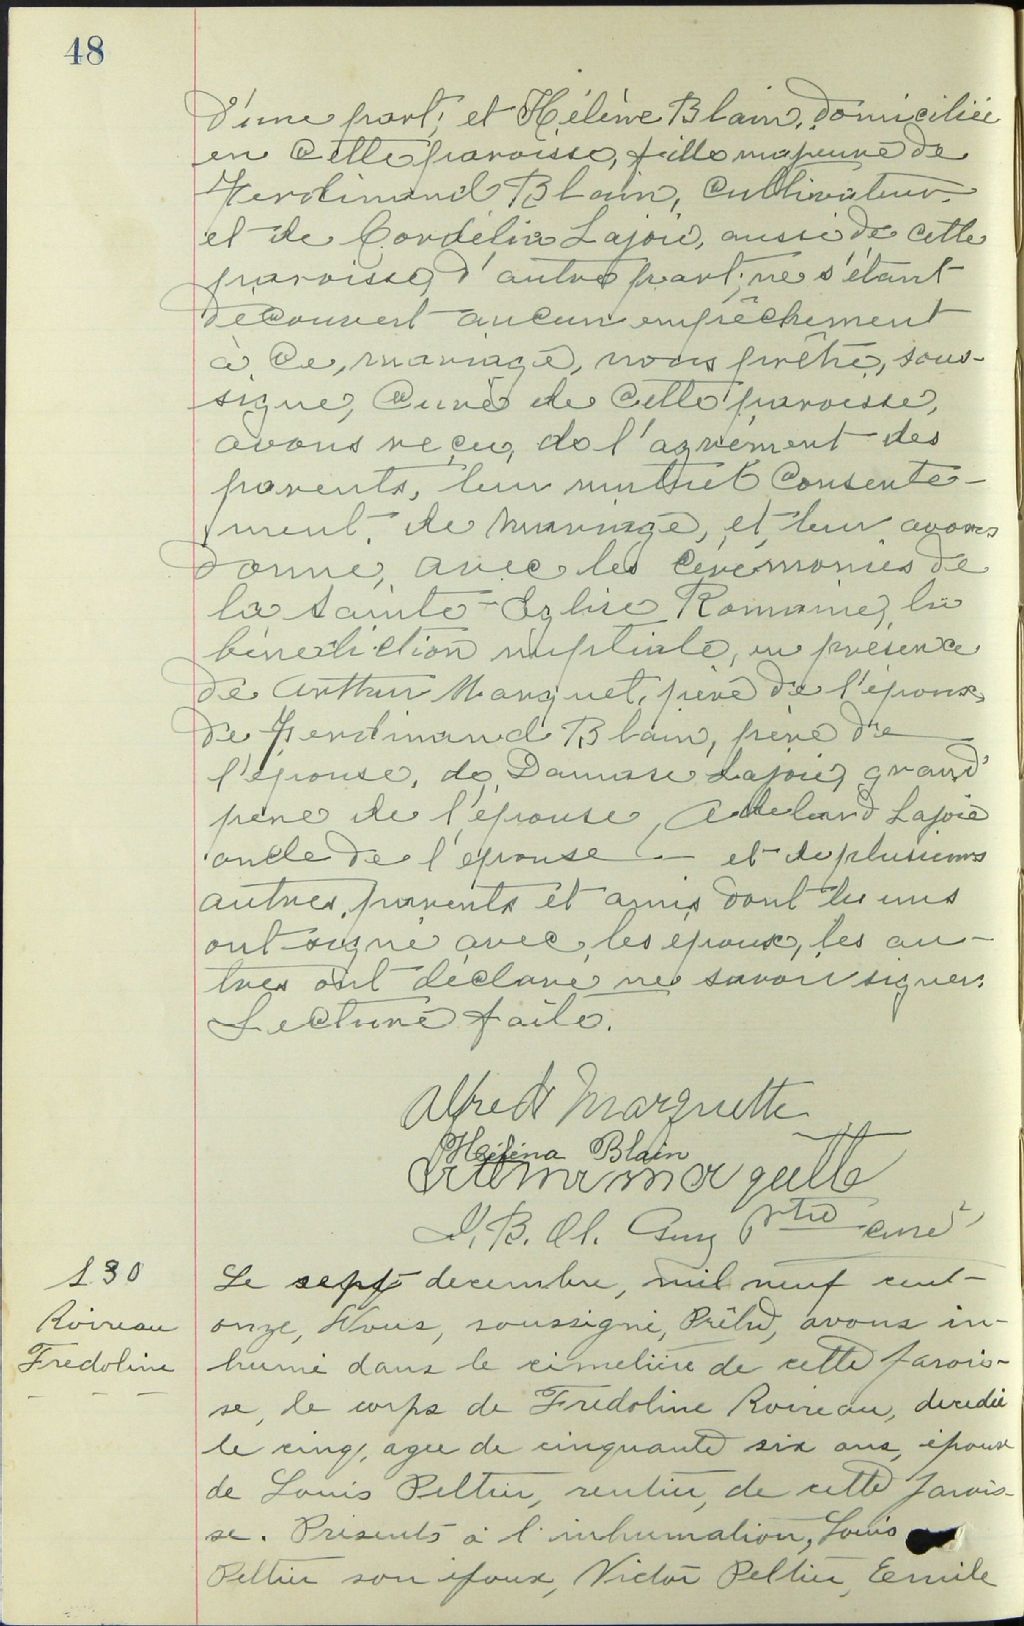 48
d'une part; et Hélène Blain, domiciliée
en cette paroisse, fille majeure de
Ferdinand Blain, cultivateur,
et de Cordélia Lajoie, aussi de cette
paroisse, d'autre part; ne s'étant
découvert aucun empêchement
à ce mariage, nous prêtre, sous-
signé, curé de cette paroisse,
avons reçu, de l'agrément des
parents, leur mutuel consente-
ment de mariage, et leur avons
donné, avec les cérémonies de
la Sainte-Eglise Romaine, la
bénédiction nuptiale, en présence
de Arthur Marquet, père de l'époux,
de Ferdinand Blain, père de
l'épouse, de Damase Lajoie, grand'
père de l'épouse, Adelard Lajoie
oncle de l'épouse — et de plusieurs
autres parents et amis dont les uns
ont signé avec les époux, les au-
tres ont déclaré ne savoir signer.
Lecture faite.
Alfred Marquette
Héléna Blain
Marquette
Ptre curé
S 30
Roireau
Fredoline
Le sept decembre, mil neuf cent-
onze, Nous, soussigné, Prêtre, avons in-
humé dans le cimetière de cette parois-
se, le corps de Fredoline Roireau, decedée
le cinq, agee de cinquante six ans, épouse
de Louis Peltier, rentier, de cette parois-
se. Présents à l'inhumation, Louis
Peltier son époux, Victor Peltier, Emile